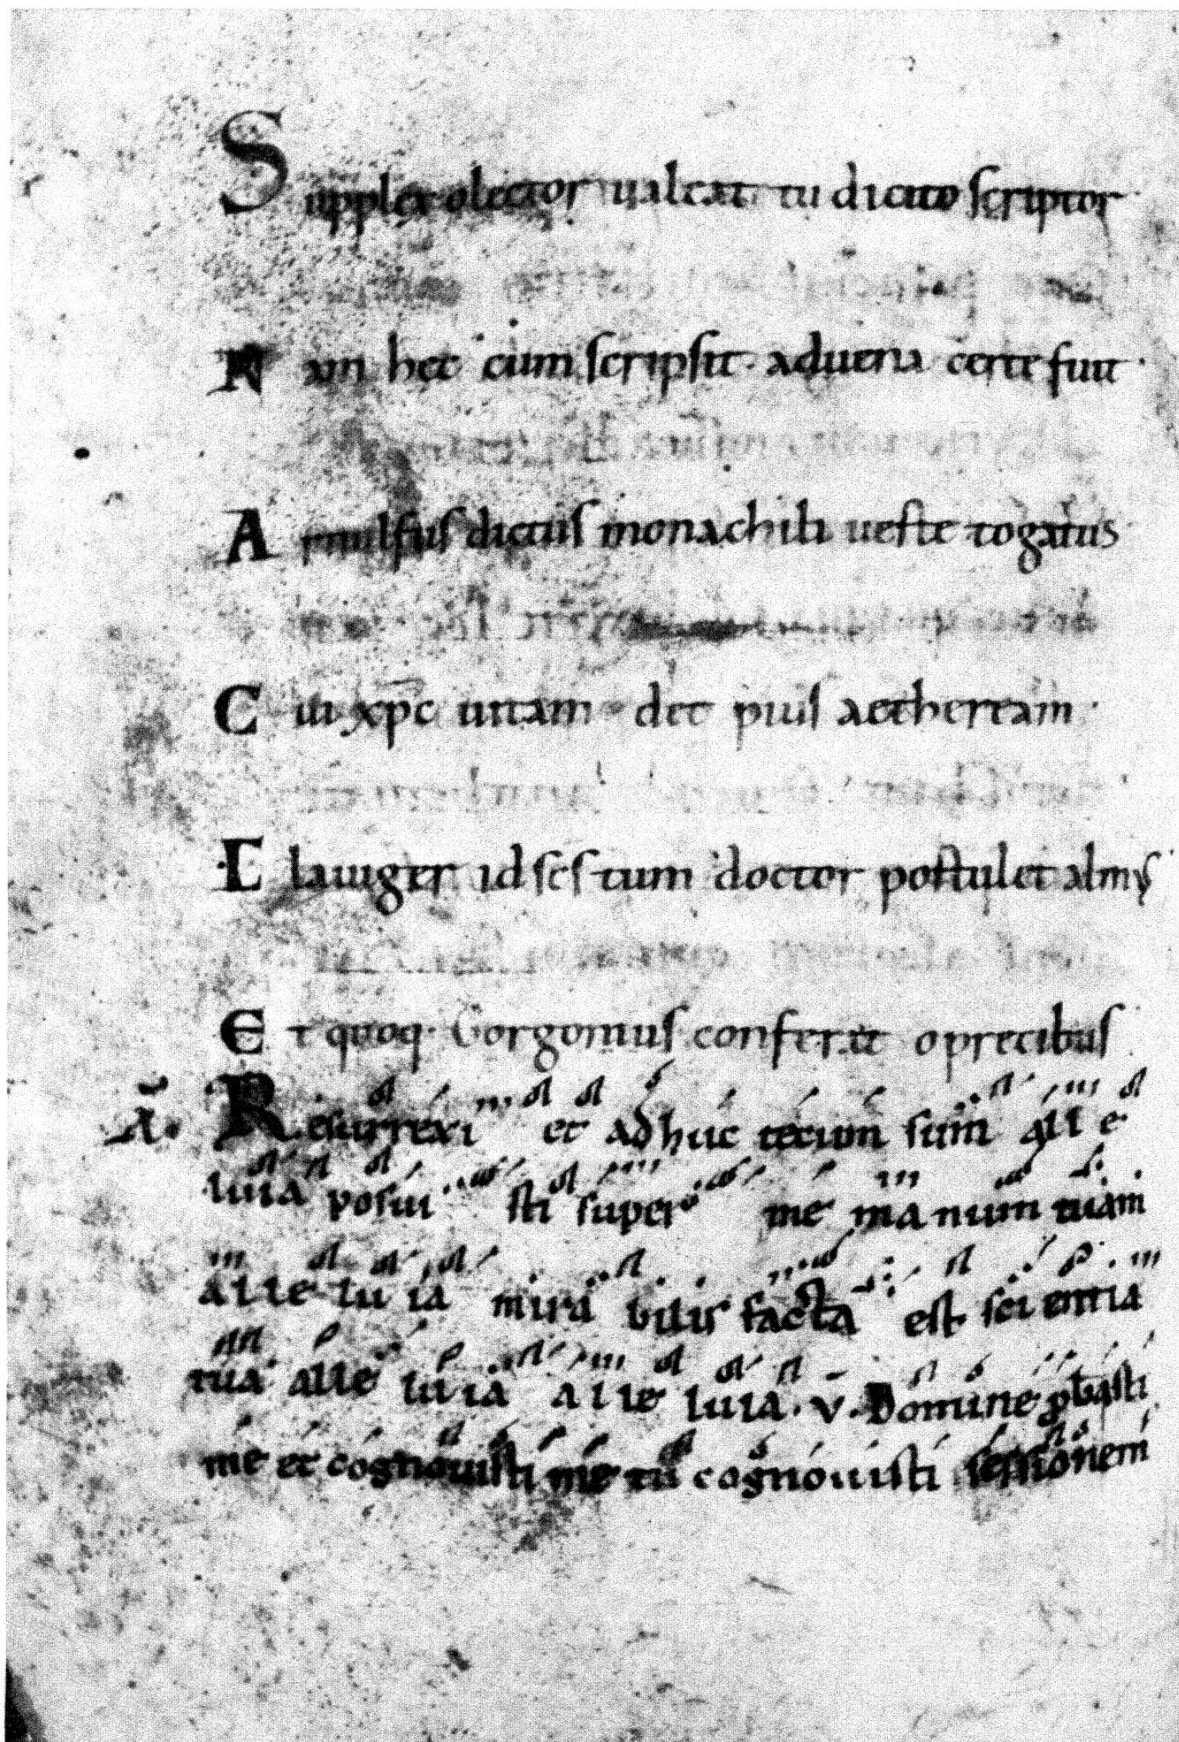 Supplex o lector ualeat tu dicito scriptor
Nam hec cum scripsit · aduena certe fuit ·
Arnulfus dictus monachili ueste togatus
Cui xp̅c uitam det pius aetheream ·
Clauiger id scs tum doctor postulet almꝰ
Et quoq· Gorgonius conferat o precibus
A̅. Resurrexi et adhuc tecum sum alle
luia posui sti super me manum tuam
alleluia mira bilis facta est scientia
tua alle luia alle luia · v · Domine ꝓbasti
me et cognouisti me tu cognouisti sessionem